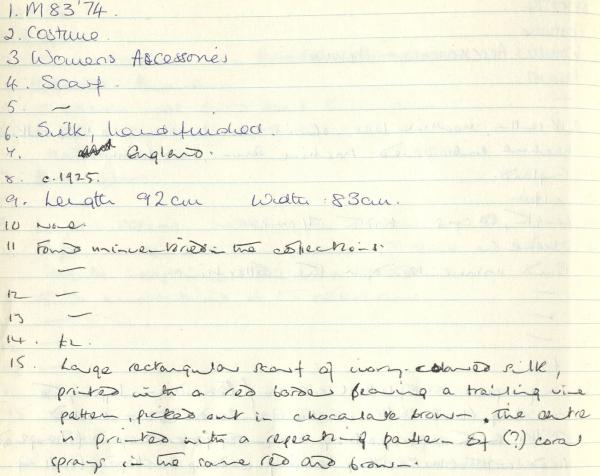 1. M83'74.
2. Costume.
3 Womens Accessories
4. Scarf.
5 —
6. Silk, hand finished.
7. England.
8. c.1925.
9. Length 92cm Width: 83cm.
10 None.
11 Found uninventoried in the collections.
—
12 —
13 —
14.
15. Large rectangular scarf of ivory-coloured silk,
printed with a red border bearing a trailing vine
pattern, picked out in chocolate brown. The centre
is printed with a repeating pattern of (?) coral
sprays in the same red and brown.